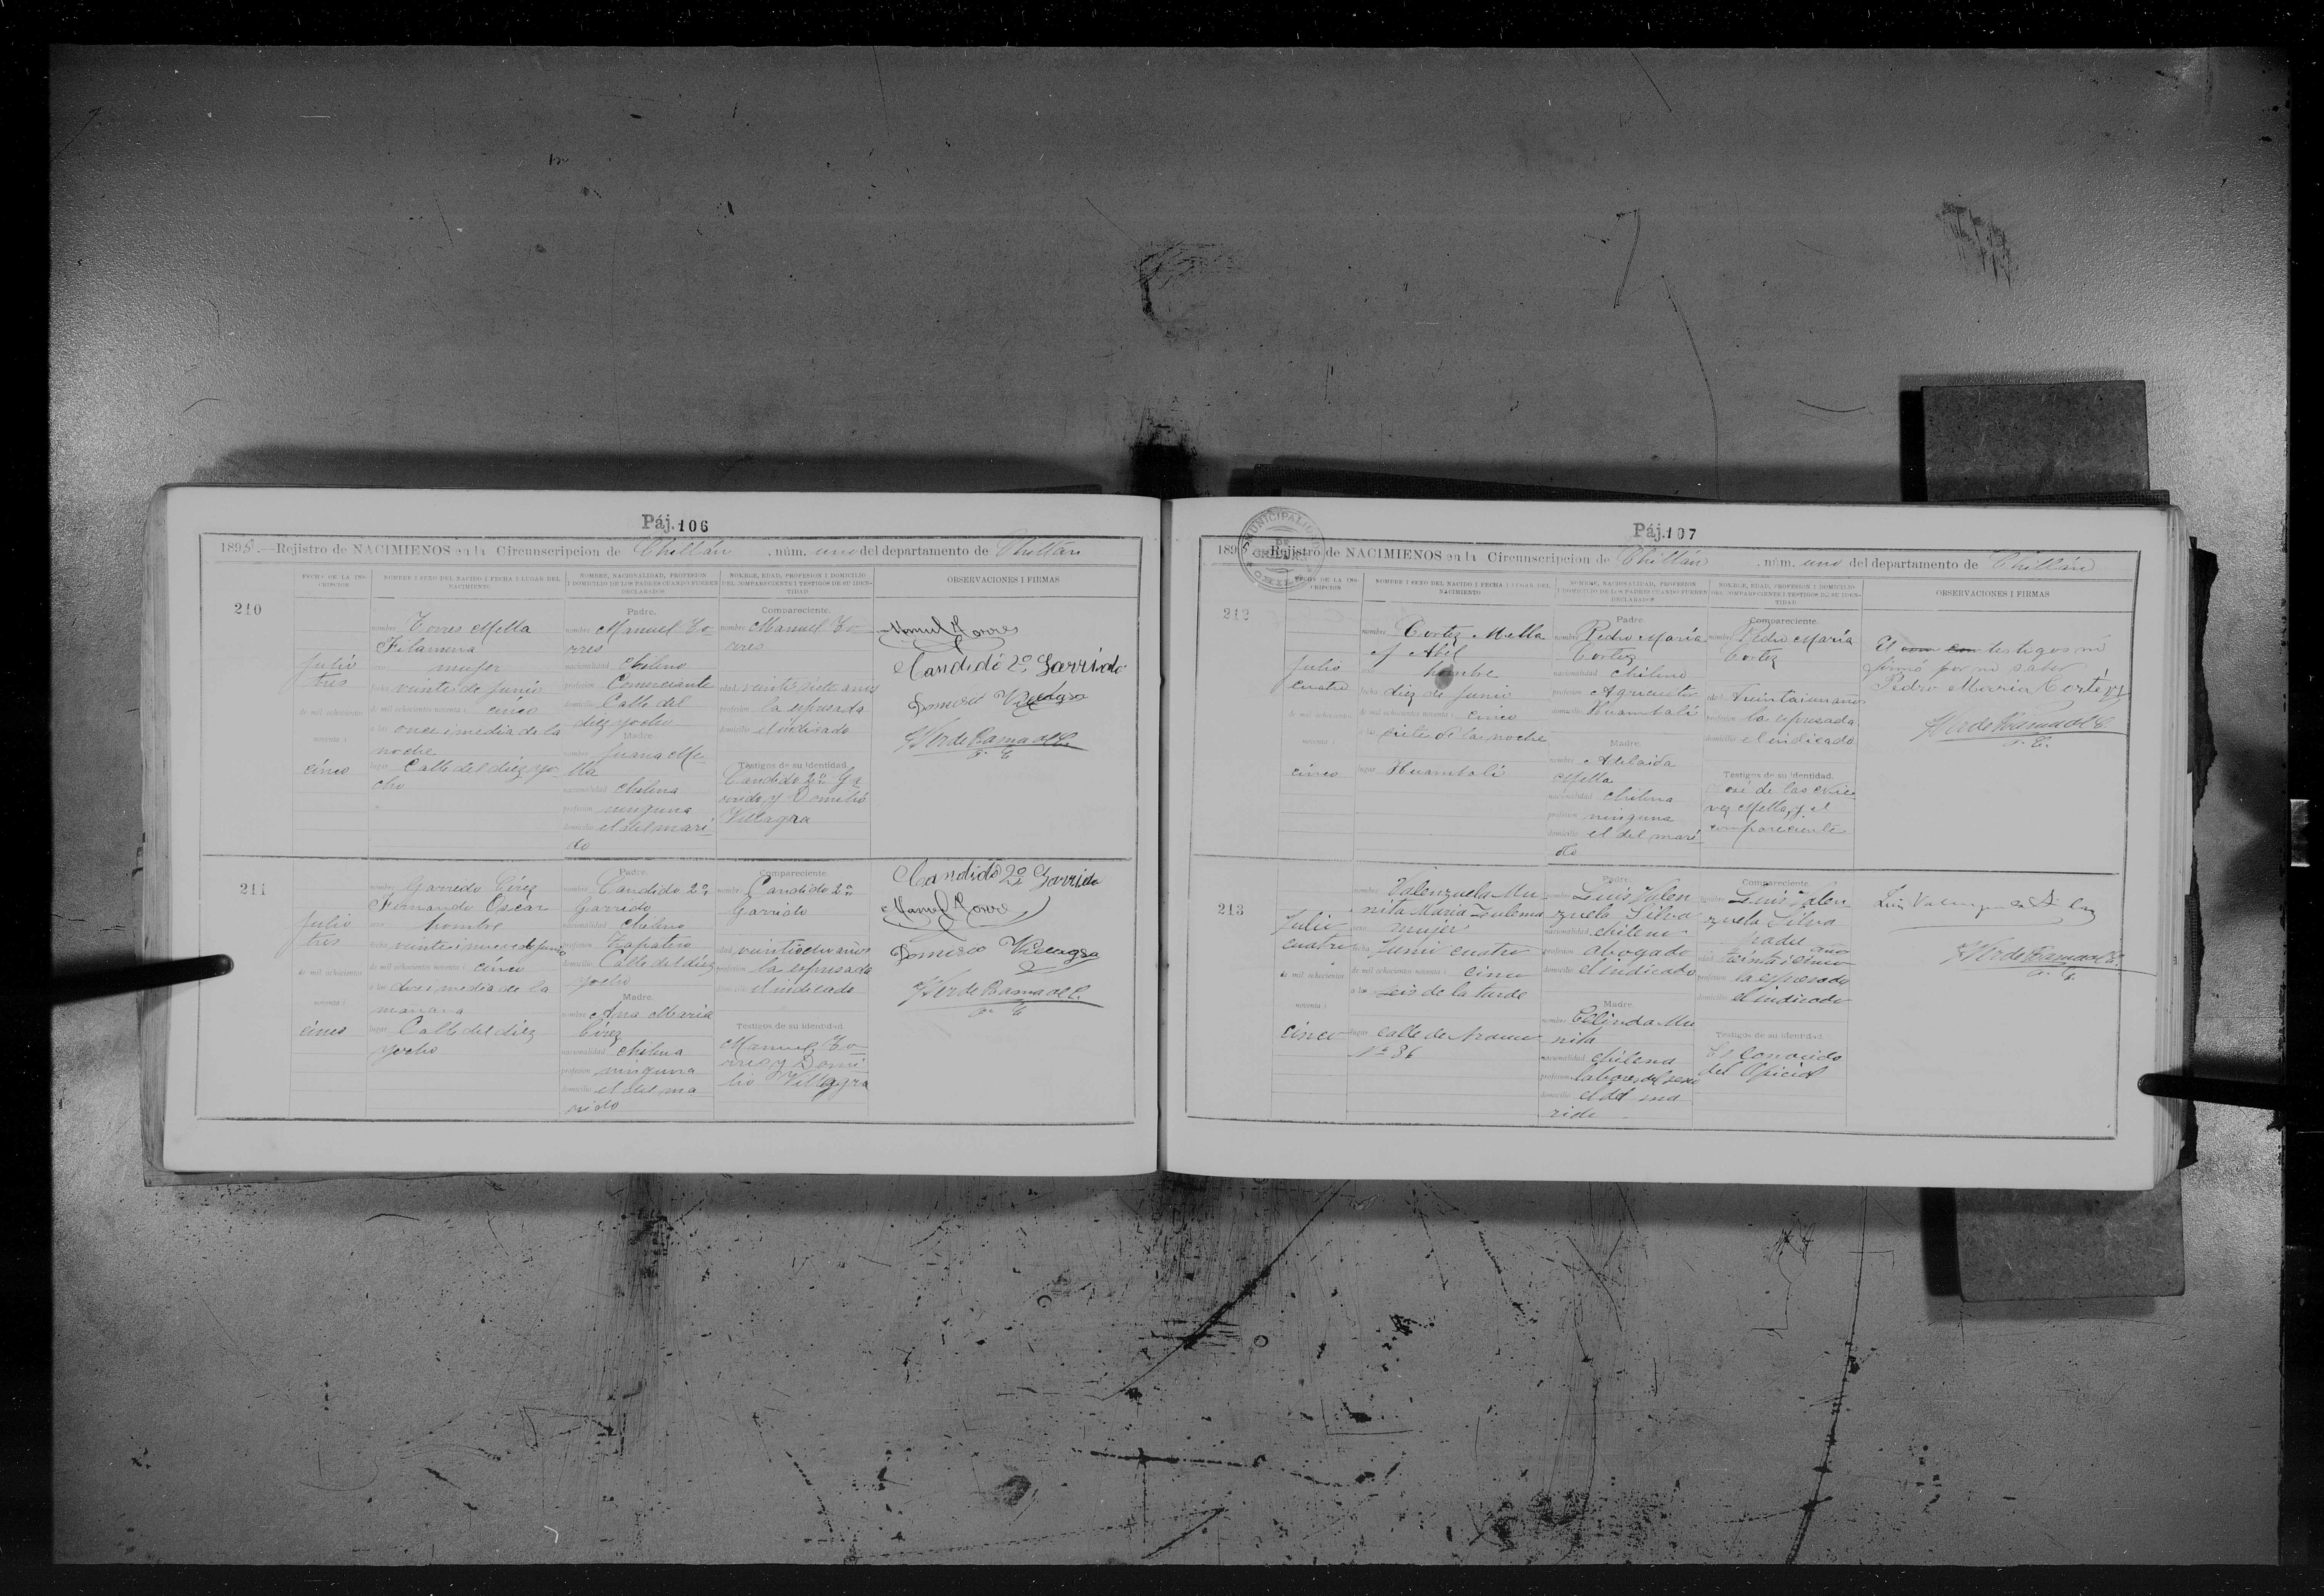 Páj. 106
1895.—Rejistro de NACIMIENOS en la Circunscripcion de Chillán, núm. uno del departamento de Chillán
FECHA DE LA INSCRIPCION
NOMBRE I SEXO DEL NACIDO I FECHA I LUGAR DEL NACIMIENTO
NOMBRE, NACIONALIDAD, PROFESION I DOMICILIO DE LOS PADRES CUANDO FUEREN DECLARADOS
NOMBRE, EDAD, PROFESION I DOMICILIO DEL COMPARECIENTE I TESTIGOS DE SU IDENTIDAD
OBSERVACIONES I FIRMAS
210
Julio
tres
de mil ochocientos
noventa i
cinco
nombre Torres Mella
Filamena
sexo mujer
fecha veinte de Junio
de mil ochocientos noventa i cinco
a las once i media de la
noche
lugar Calle del diez yo-
cho
Padre.
nombre Manuel To-
rres
nacionalidad chileno
profesion Comerciante
domicilio Calle del
diez yocho
Madre
nombre Juana Me-
lla
nacionalidad chilena
profesion ninguna
domicilio el del mari-
do
Compareciente.
nombre Manuel To-
rres
edad veinte siete años
profesion la espresada
domicilio el indicado
Testigos de su identidad
Candido 2º Ga-
rrido y Domilio
Villagra
Manuel Torres
Candido 2º Garrido
Domilio Villagra
211
Julio
tres
de mil ochocientos
noventa i
cinco
nombre Garrido Cirez
Fernando Oscar
sexo hombre
fecha veinte i nueve de Junio
de mil ochocientos noventa i cinco
a las dos i media de la
mañana
lugar Calle del diez
yocho
Padre.
nombre Candido 2º
Garrido
nacionalidad chileno
profesion Zapatero
domicilio Calle del diez
yocho
Madre.
nombre Ana Maria
Cirez
nacionalidad chilena
profesion ninguna
domicilio el del ma-
rido
Compareciente.
nombre Candido 2º
Garrido
edad veintiocho años
profesion la espresada
domicilio el indicado
Testigos de su identidad
Manuel To-
rres y Domi-
lio Villagra
Candido 2º Garrido
Manuel Torres
Domilio Villagra
Páj. 107
MUNICIPALIDAD DE
1895.—Rejistro de NACIMIENOS en la Circunscripcion de Chillán, núm. uno del departamento de Chillán
FECHA DE LA INSCRIPCION
NOMBRE I SEXO DEL NACIDO I FECHA I LUGAR DEL NACIMIENTO
NOMBRE, NACIONALIDAD, PROFESION I DOMICILIO DE LOS PADRES CUANDO FUEREN DECLARADOS
NOMBRE, EDAD, PROFESION I DOMICILIO DEL COMPARECIENTE I TESTIGOS DE SU IDENTIDAD
OBSERVACIONES I FIRMAS
212
Julio
cuatro
de mil ochocientos
noventa i
cinco
nombre Cortez Mella
Abel
sexo hombre
fecha diez de Junio
de mil ochocientos noventa i cinco
a las siete de la noche
lugar Huambalí
Padre
nombre Pedro María
Cortez
nacionalidad chileno
profesion Agricultor
domicilio Huambalí
Madre.
nombre Adelaida
Mella
nacionalidad chilena
profesion ninguna
domicilio el del mari-
do
Compareciente.
nombre Pedro María
Cortez
edad treinta i un años
profesion la espresada
domicilio el indicado
Testigos de su identidad.
José de las Nie-
vez Mella, y el
compareciente
El testigos no
firmó por no saber
Pedro Maria Cortéz
213
Julio
cuatro
de mil ochocientos
noventa i
cinco
nombre Valenzuela Mu-
nita Maria Zulema
sexo mujer
fecha Junio cuatro
de mil ochocientos noventa i cinco
a las seis de la tarde
lugar calle de Arauco
Nº 86
Padre.
nombre Luis Valen
zuela Silva
nacionalidad chileno
profesion abogado
domicilio el indicado
Madre
nombre Celinda Mu
nita
nacionalidad chilena
profesion labores del sexo
domicilio el del ma
rido
Compareciente
nombre Luis Valen
zuela Silva
padre
edad treinta i cinco años
profesion la espresada
domicilio el indicado
Testigos de su identidad
Es conocido
del Oficial